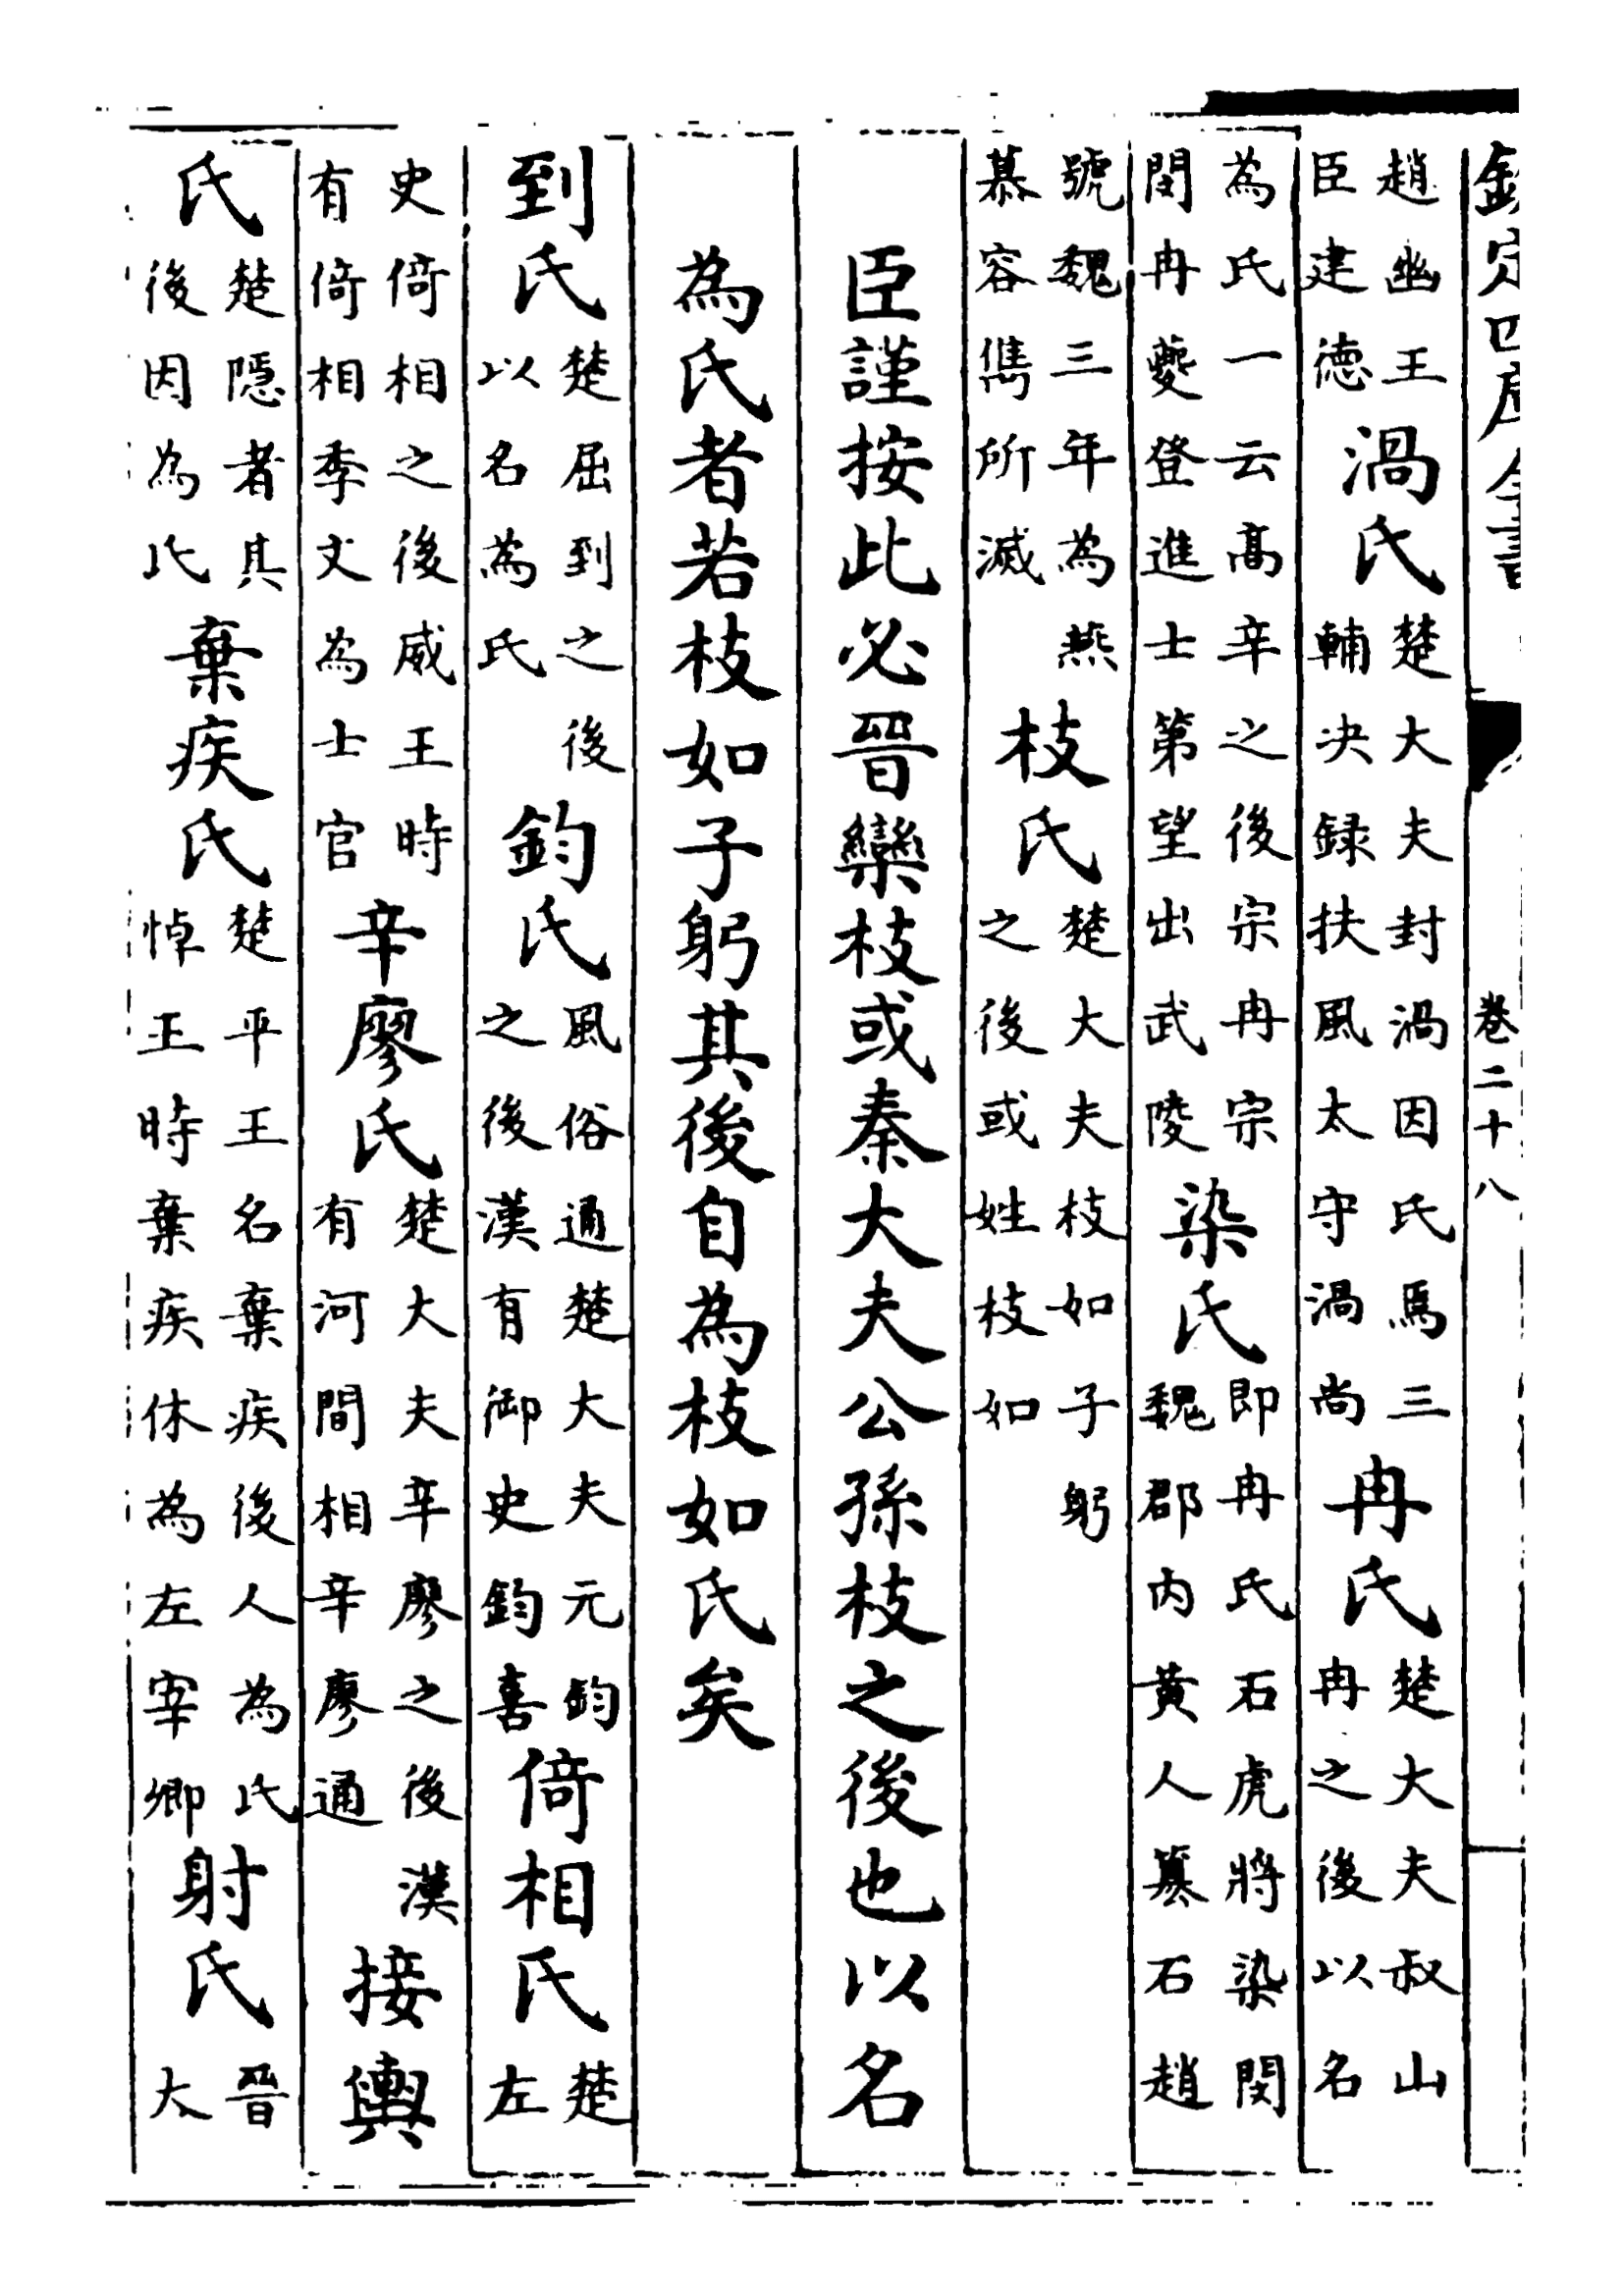 欽定四庫全書 卷二十八
趙幽王
臣建德
渦氏
楚大夫封渦因氏焉三
輔决録扶風太守渦尚
冉氏
楚大夫叔山
冉之後以名
為氏一云髙辛之後宗冉宗
閔冉夔登進士第望出武陵
染氏
即冉氏石虎將染閔
魏郡内黄人簒石趙
號魏三年為燕
慕容儁所滅
枝氏
楚大夫枝如子躬
之後或姓枝如
臣謹按此必晉欒枝或秦大夫公孫枝之後也以名
為氏者若枝如子躬其後自為枝如氏矣
到氏
楚屈到之後
以名為氏
鈞氏
風俗通楚大夫元鈞
之後漢有御史鈞喜
倚相氏
楚
左
史倚相之後威王時
有倚相季文為士官
辛廖氏
楚大夫辛廖之後漢
有河間相辛廖通
接輿
氏
楚隠者其
後因為氏
棄疾氏
楚平王名棄疾後人為氏
悼王時棄疾休為左宰卿
射氏
晉
大